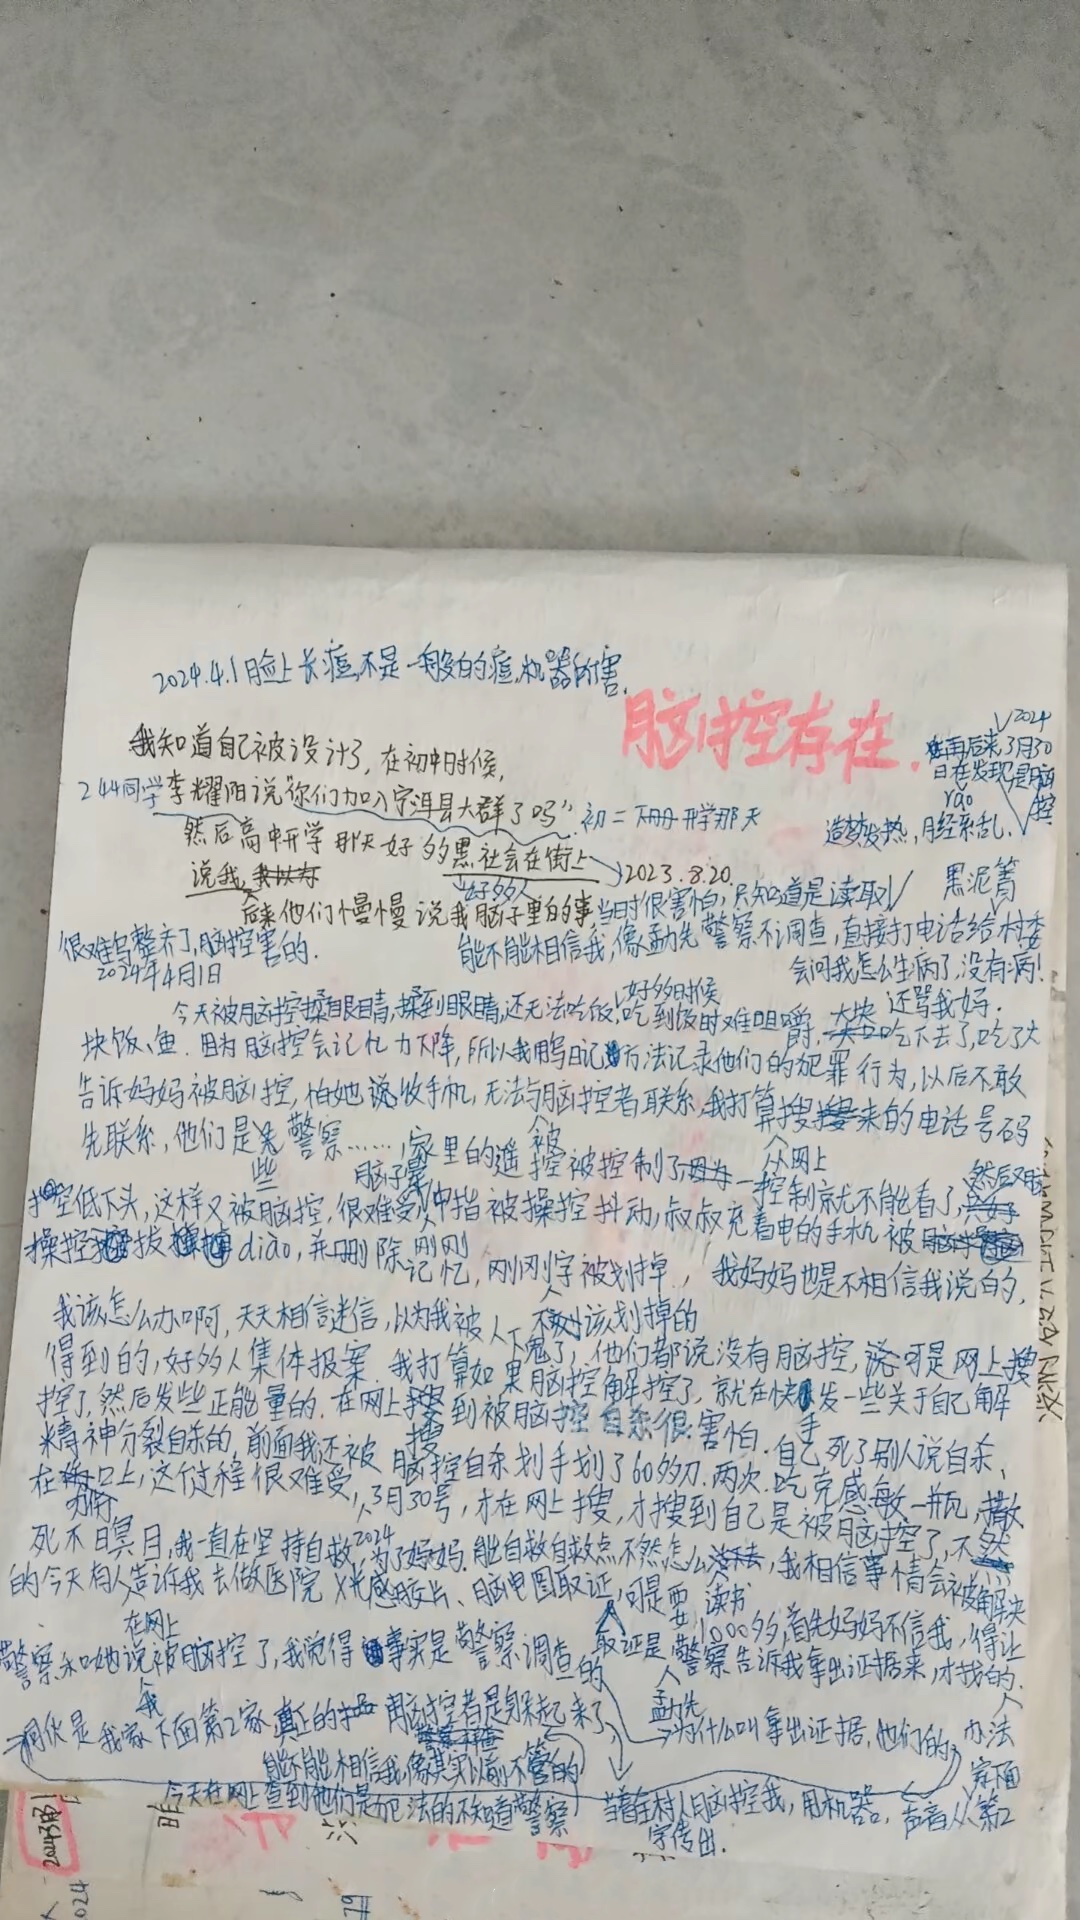 2024.4.1脸上长痘,不是一般的痘,机器所害.
脑控存在.
我知道自己被设计了,在初中时候,
244同学李耀阳说"你们加入宁洱县大群了吗"初二下册开学那天
然后高中开学那天好多黑社会在街上
2023.8.20
说我
好多人
后来他们慢慢说我脑子里的事当时很害怕,只知道是读取
2024
再后来3月30
日在发现是脑
控
rao
造梦发热,月经紊乱.
黑泥箐
很难受整天了,脑控害的.
2024年4月1日
能不能相信我,像孟先警察不调查,直接打电话给村委
会问我怎么生病了,没有病!
还骂我妈.
今天被脑控揉眼睛,揉到眼睛,还无法吃饭,吃到饭时难咀嚼,大块吃下去了,吃了大
好多时候
块饭、鱼.因为脑控会记忆力下降,所以我用写日记方法记录他们的犯罪行为,以后不敢
告诉妈妈被脑控,怕她说收手机,无法与脑控者联系,我打算搜来的电话号码
先联系,他们是警察……,家里的遥控被控制了一控制就不能看了,然后又脑
些
被
从网上
控低下头,这样又被脑控,很难受,中指被操控抖动,叔叔充着电的手机被
脑子里
操控拔diào,并删除刚刚记忆,刚刚字被划掉,我妈妈也是不相信我说的,
我该怎么办啊,天天相信迷信,以为我被人下鬼了,他们都说没有脑控,可是网上搜
不该划掉的
得到的,好多人集体报案.我打算如果脑控解控了,就在快手发一些关于自己解
控了,然后发些正能量的.在网上搜到被脑控自杀很害怕.自己死了别人说自杀、
精神分裂自杀的,前面我还被脑控自杀划手划了60多刀.两次.吃克感敏一瓶,撒
在伤口上,这个过程很难受,3月30号,才在网上搜,才搜到自己是被脑控了,不然
死不瞑目,我一直在坚持自救,为了妈妈.能自救自救点不然怎么,我相信事情会被解决
2024
的今天有人告诉我去做医院X光感胶片、脑电图取证,可是要1000多,首先妈妈不信我,得让
读书
在网上
警察和她说被脑控了,我觉得事实是警察调查的
取证是警察告诉我拿出证据来,才找的.
我
同伙是我家下面第2家真正的用脑控者是躲起来了
孟先
为什么叫拿出证据,他们的办法
能不能相信我,像其实以前不管的
今天在网上查到他们是犯法的不知道警察
当着全村人脑控我,用机器,声音从第2
家下面
字传出.
2024